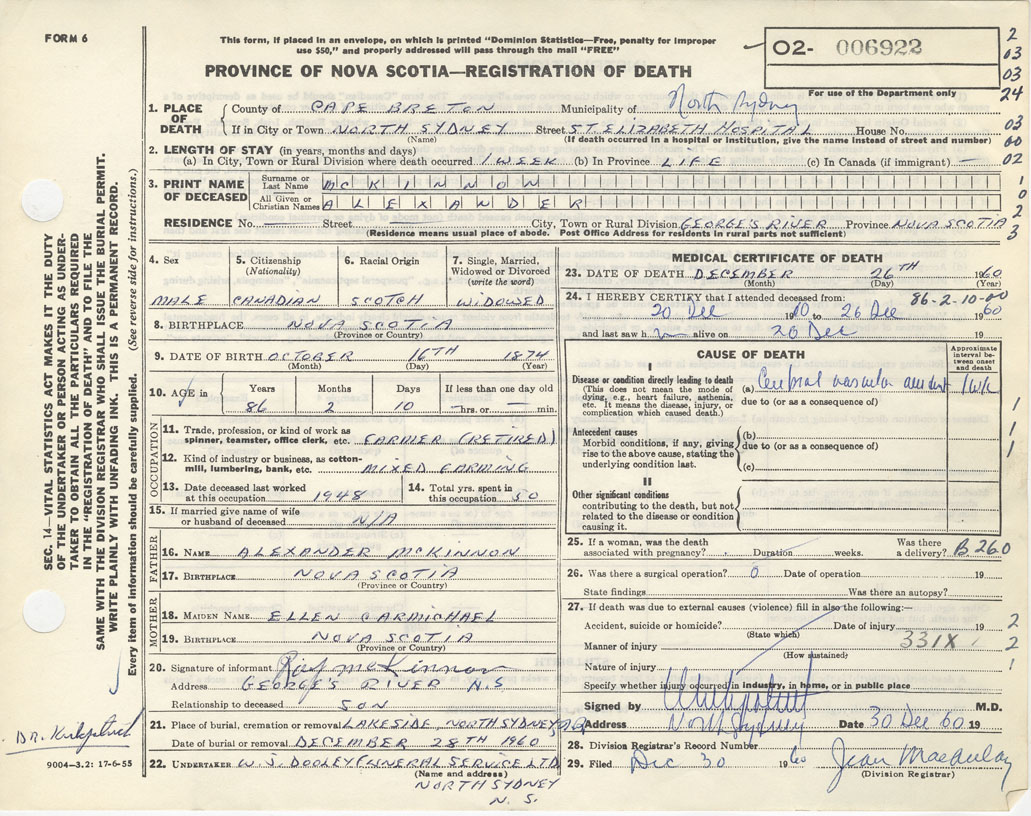 FORM 6
This form, if placed in an envelope, on which is printed "Dominion Statistics—Free, penalty for improper
use $50," and properly addressed will pass through the mail "FREE"
PROVINCE OF NOVA SCOTIA—REGISTRATION OF DEATH
02- 006922
For use of the Department only
2
03
03
24
03
00
02
1
0
2
3
1. PLACE OF DEATH
County of CAPE BRETON Municipality of North Sydney
If in City or Town NORTH SYDNEY Street ST. ELIZABETH HOSPITAL House No.
(Name) (If death occurred in a hospital or institution, give the name instead of street and number)
2. LENGTH OF STAY (in years, months and days)
(a) In City, Town or Rural Division where death occurred 1 WEEK (b) In Province LIFE (c) In Canada (if immigrant) —
3. PRINT NAME OF DECEASED
Surname or Last Name MCKINNON
All Given or Christian Names ALEXANDER
RESIDENCE No. — Street — City, Town or Rural Division GEORGE'S RIVER Province NOVA SCOTIA
(Residence means usual place of abode. Post Office Address for residents in rural parts not sufficient)
4. Sex
MALE
5. Citizenship
(Nationality)
CANADIAN
6. Racial Origin
SCOTCH
7. Single, Married,
Widowed or Divorced
(write the word)
WIDOWED
8. BIRTHPLACE NOVA SCOTIA
(Province or Country)
9. DATE OF BIRTH OCTOBER 16TH 1874
(Month) (Day) (Year)
10. AGE in
Years Months Days If less than one day old
86 2 10 —hrs. or — min.
OCCUPATION
11. Trade, profession, or kind of work as
spinner, teamster, office clerk, etc. FARMER (RETIRED)
12. Kind of industry or business, as cotton-
mill, lumbering, bank, etc. MIXED FARMING
13. Date deceased last worked
at this occupation 1948
14. Total yrs. spent in
this occupation 50
15. If married give name of wife
or husband of deceased N/A
FATHER
16. NAME ALEXANDER MCKINNON
17. BIRTHPLACE NOVA SCOTIA
(Province or Country)
MOTHER
18. MAIDEN NAME ELLEN CARMICHAEL
19. BIRTHPLACE NOVA SCOTIA
(Province or Country)
20. Signature of informant Roy McKinnon
Address GEORGE'S RIVER N.S.
Relationship to deceased SON
21. Place of burial, cremation or removal LAKESIDE NORTH SYDNEY
Date of burial or removal DECEMBER 28TH 1960
22. UNDERTAKER W.J. DOOLEY FUNERAL SERVICE LTD
(Name and address)
NORTH SYDNEY
N. S.
MEDICAL CERTIFICATE OF DEATH
23. DATE OF DEATH DECEMBER 26TH 1960
(Month) (Day) (Year)
24. I HEREBY CERTIFY that I attended deceased from: 86-2-10-00
20 Dec 1960 to 26 Dec 1960
and last saw h alive on 20 Dec 19
CAUSE OF DEATH
Approximate interval between onset and death
I
Disease or condition directly leading to death
(This does not mean the mode of
dying, e.g., heart failure, asthenia,
etc. It means the disease, injury, or
complication which caused death.)
(a) Cerebral vascular accident 1 wk
due to (or as a consequence of)
Antecedent causes
Morbid conditions, if any, giving
rise to the above cause, stating the
underlying condition last.
(b)
due to (or as a consequence of)
(c)
1
1
1
II
Other significant conditions
contributing to the death, but not
related to the disease or condition
causing it.
25. If a woman, was the death
associated with pregnancy? Duration weeks. Was there
a delivery? B.260
26. Was there a surgical operation? 0 Date of operation 19
State findings Was there an autopsy?
27. If death was due to external causes (violence) fill in also the following:—
Accident, suicide or homicide? Date of injury 19
(State which)
Manner of injury 331X
(How sustained)
Nature of injury
2
2
1
Specify whether injury occurred in industry, in home, or in public place
Signed by M.D.
Address North Sydney Date 30 Dec 60 19
28. Division Registrar's Record Number
29. Filed Dec 30 1960 Jean Macaulay
(Division Registrar)
SEC. 14—VITAL STATISTICS ACT MAKES IT THE DUTY
OF THE UNDERTAKER OR PERSON ACTING AS UNDER-
TAKER TO OBTAIN ALL THE PARTICULARS REQUIRED
IN THE "REGISTRATION OF DEATH" AND TO FILE THE
SAME WITH THE DIVISION REGISTRAR WHO SHALL ISSUE THE BURIAL PERMIT.
WRITE PLAINLY WITH UNFADING INK. THIS IS A PERMANENT RECORD.
Every item of information should be carefully supplied. (See reverse side for instructions.)
DR. Kirkpatrick
9004—3.2: 17-6-55